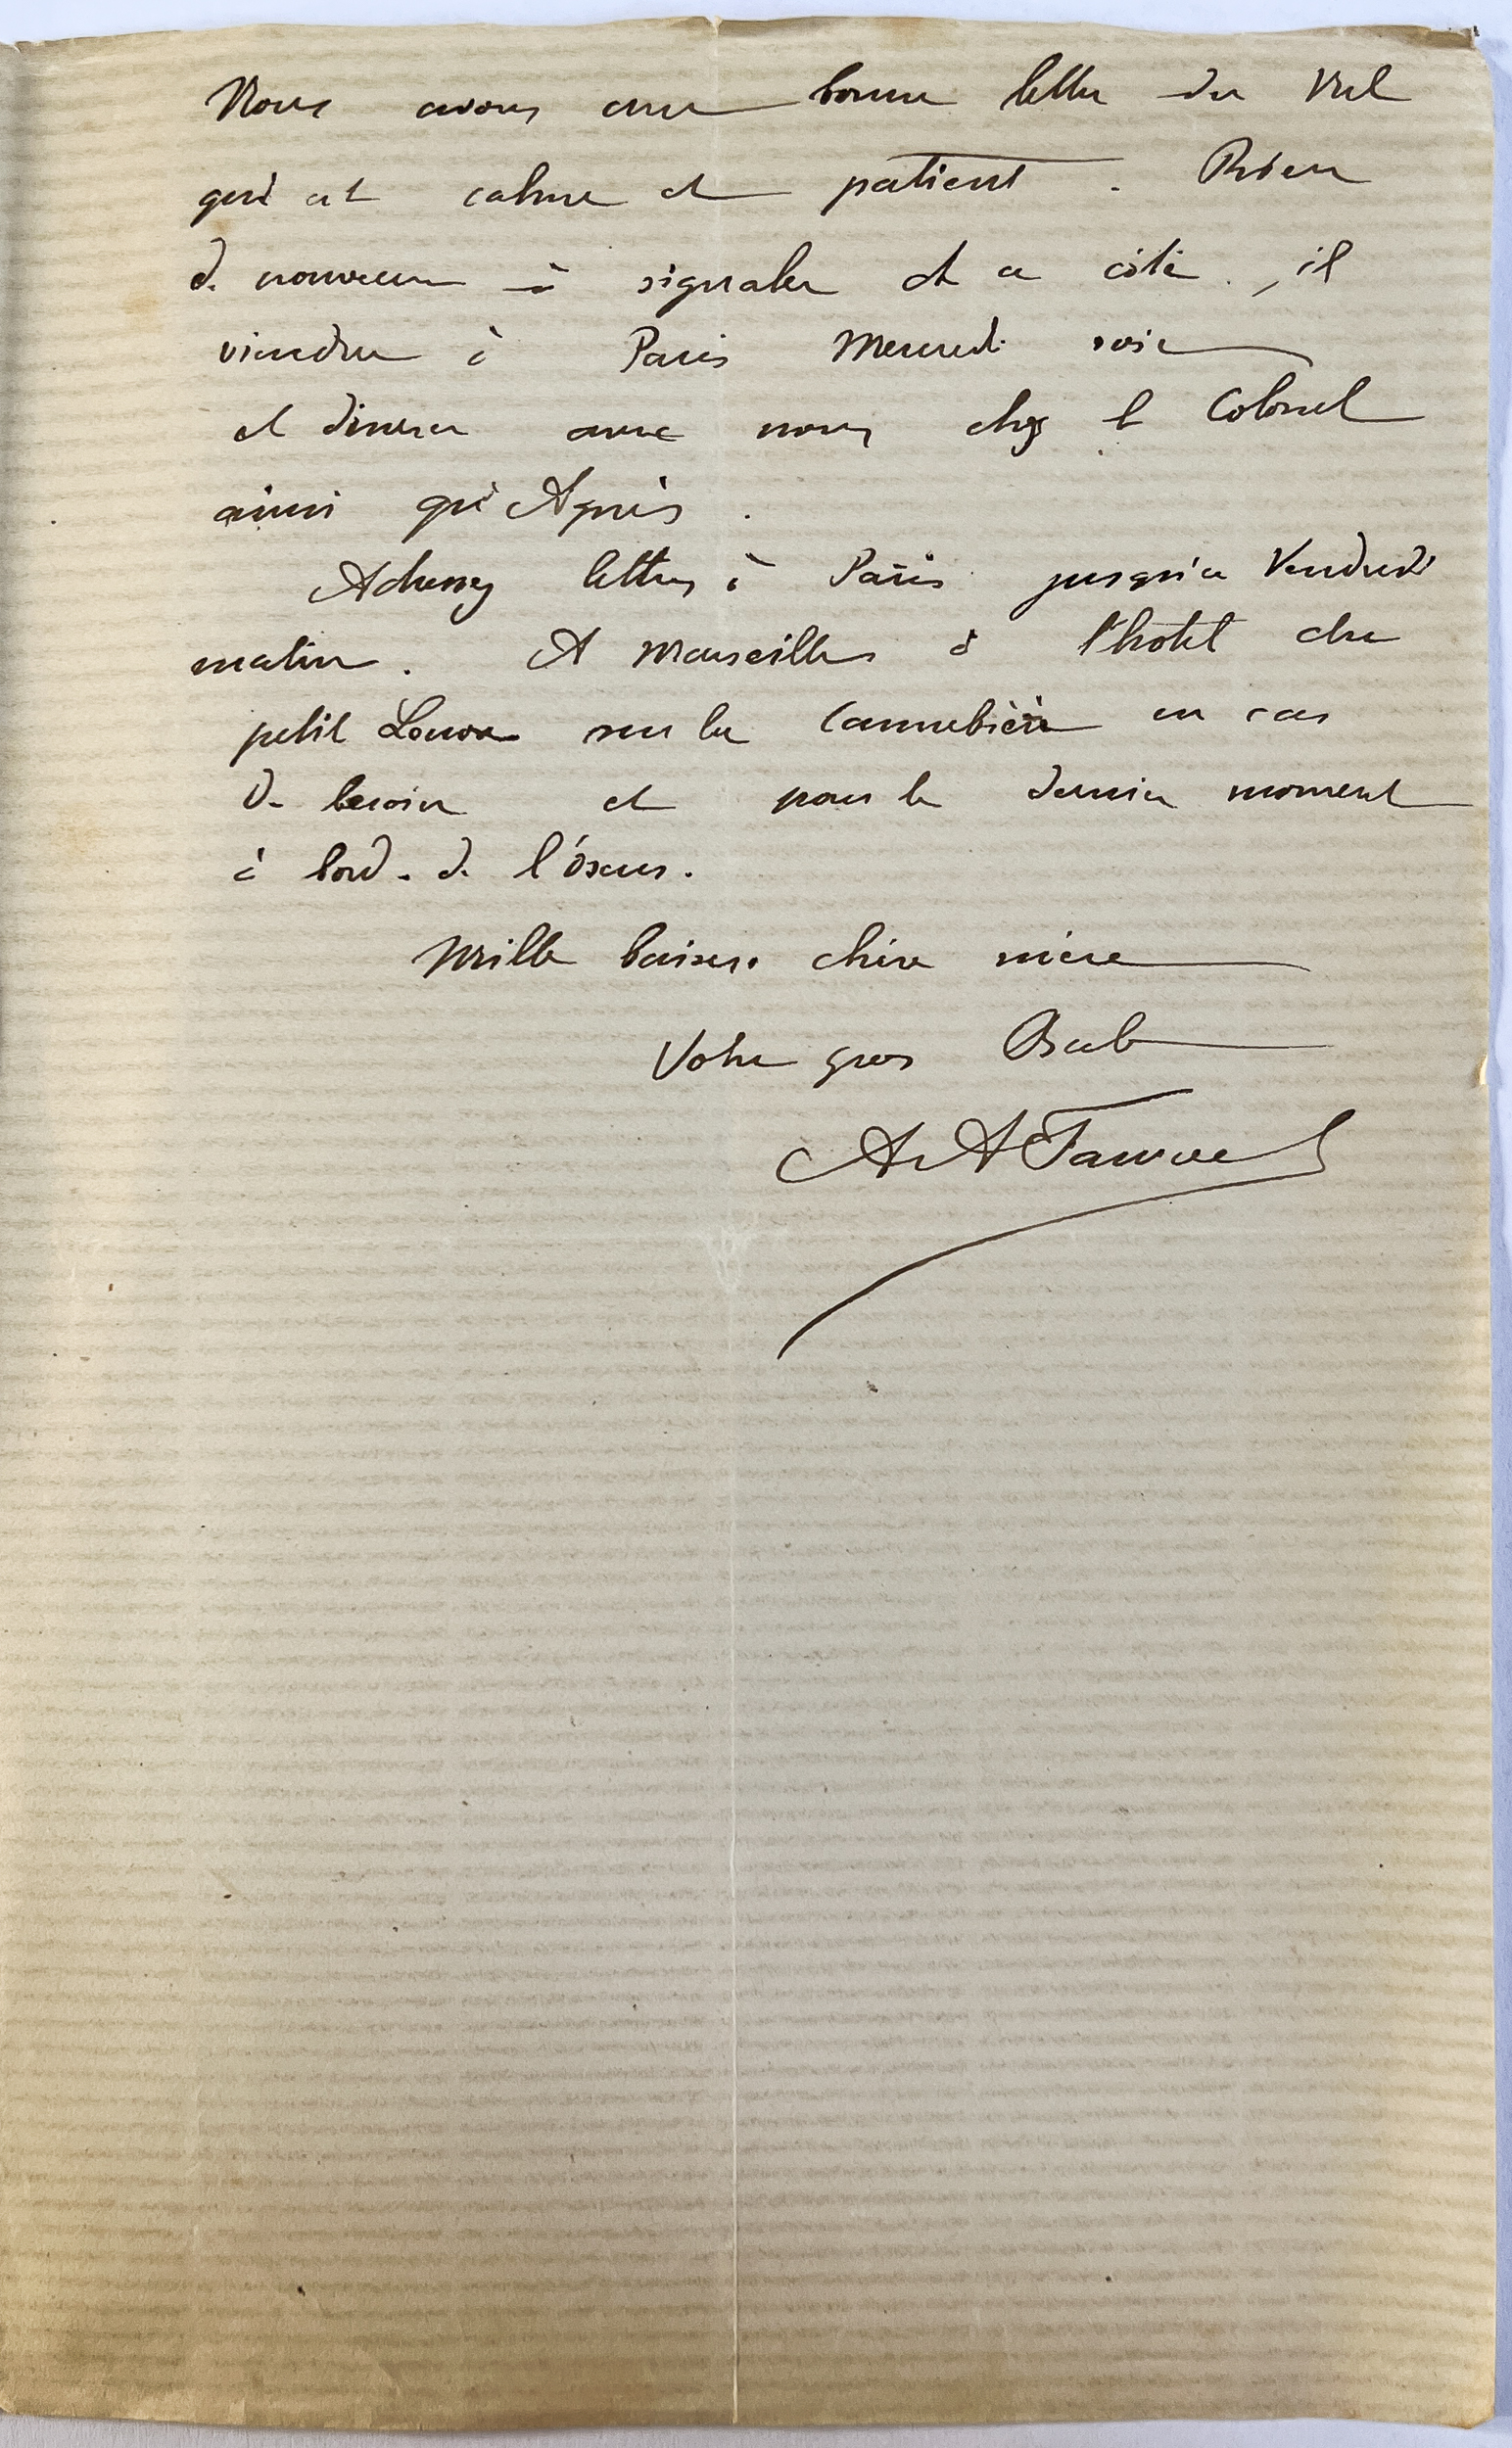 Nous avons une bonne lettre du
qui est calme et patient. Rien
de nouveau à signaler et ce côté, il
viendra à Paris Mercredi soir
et dinera avec nous chez le Colonel
ainsi qu'Agnès.
Adressez lettres à Paris jusqu'à Vendredi
matin. A Marseille à l'hôtel du
petit Louvre sur la Cannebière en cas
de besoin et pour le dernier moment
à bord de l'Oxus.
Mille baisers chère mère
Votre gros